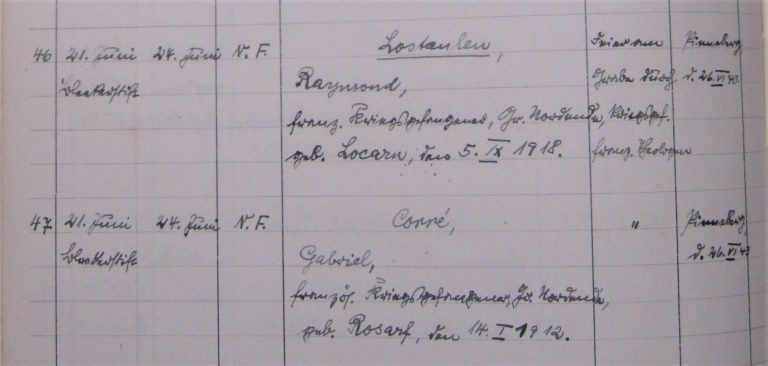 46 21. Juni 24. Juni N. F. Lostanlen, Feier am Pinneberg,
Raymond, Grabe durch d. 26. VI 43
franz. Kriegsgefangener, Gr. Nordende, Kriegsgef.
geb. Locarn, den 5. IX 1918. franz. Theologen
47 21. Juni 24. Juni N. F. Corré, " Pinneberg,
Gabriel, d. 26. VI 43
französ. Kriegsgefangener, Gr. Nordende,
geb. Rosarf, den 14. I 1912.